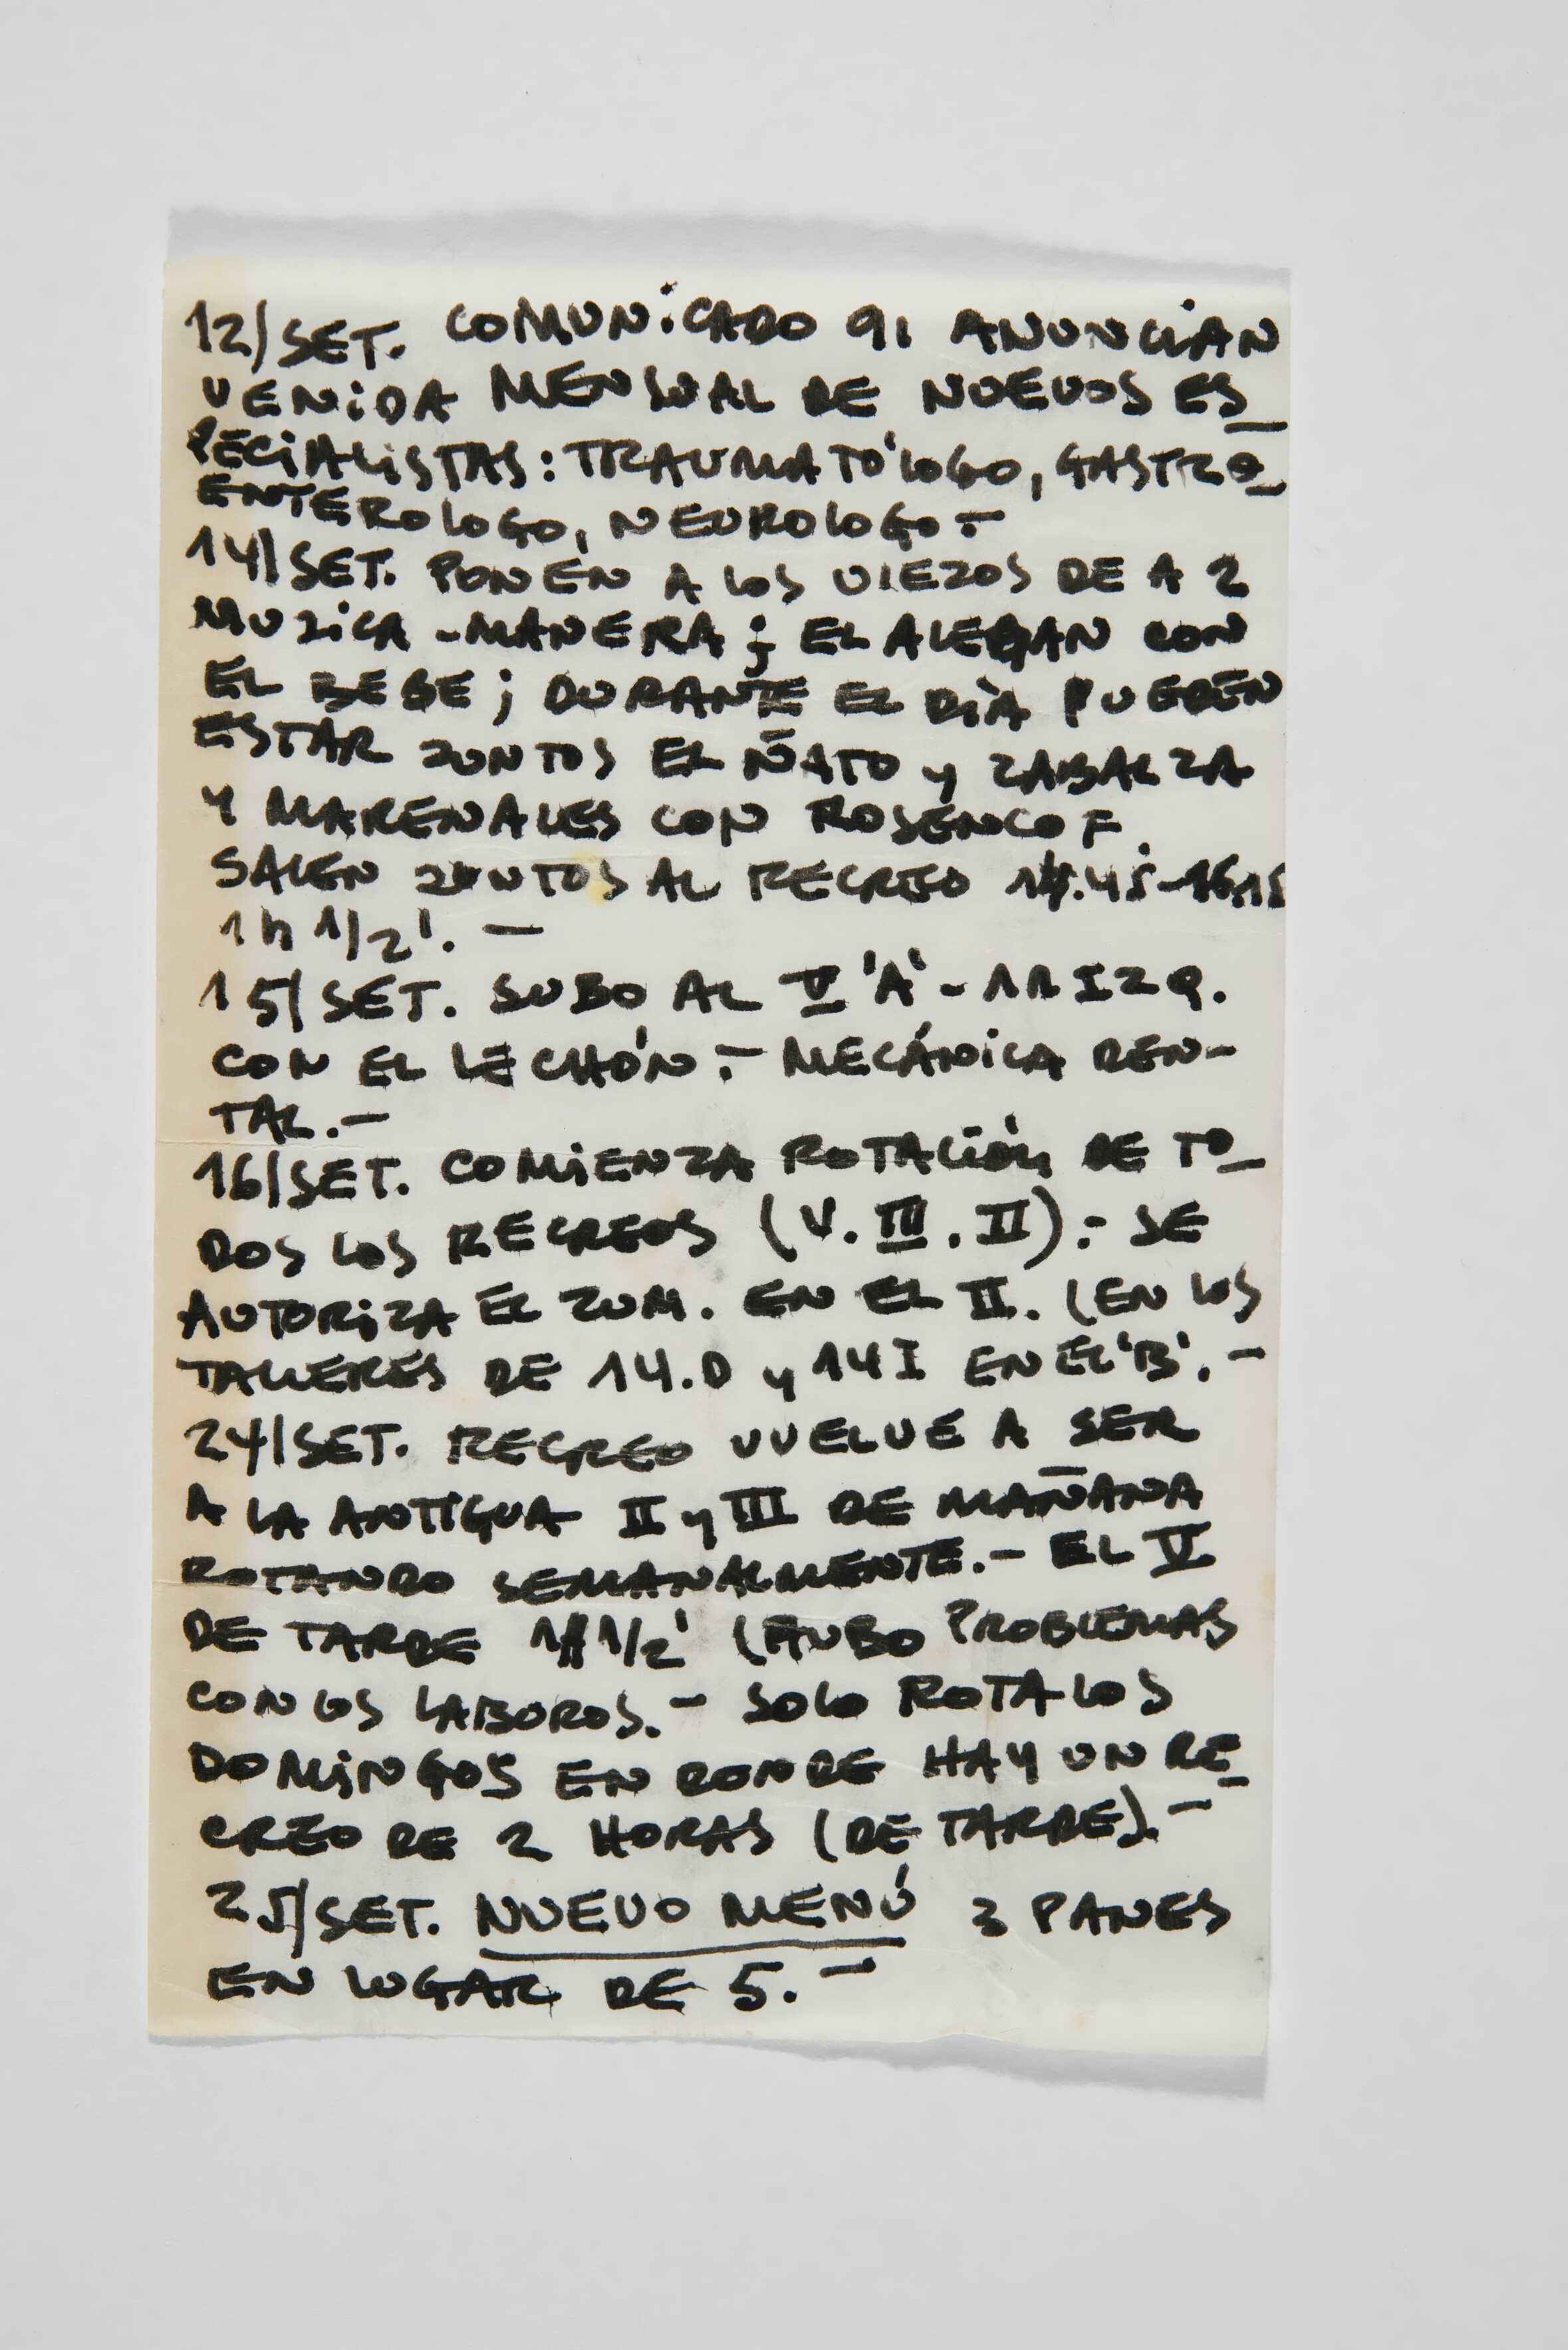 12/SET. COMUNICADO 91 ANUNCIAN
VENIDA MENSUAL DE NUEVOS ES_
PECIALISTAS: TRAUMATÓLOGO, GASTRO_
ENTEROLOGO, NEUROLOGO.-
14/SET. PONEN A LOS VIEJOS DE A 2
MUJICA - MANERA; EL ALEMAN CON
EL BEBE; DURANTE EL DÍA PUEDEN
ESTAR JUNTOS EL ÑATO Y ZABALZA
Y MARENALES CON ROSENCOF.
SALEN JUNTOS AL RECREO 14.45-16.15
1h 1/2'. -
15/SET. SUBO AL V 'A' - 11 IZQ.
CON EL LECHÓN.- MECÁNICA DEN-
TAL.-
16/SET. COMIENZA ROTACIÓN DE TO_
DOS LOS RECREOS (V. III. II):- SE
AUTORIZA EL ZUM. EN EL II. (EN LOS
TALLERES DE 14.D Y 14 I EN EL 'B'.-
24/SET. RECREO VUELVE A SER
A LA ANTIGUA II Y III DE MAÑANA
ROTANDO SEMANALMENTE.- EL V
DE TARDE 1H 1/2' (HUBO PROBLEMAS
CON LOS LABOROS.- SOLO ROTA LOS
DOMINGOS EN DONDE HAY UN RE_
CREO DE 2 HORAS (DE TARDE).-
25/SET. NUEVO MENÚ 3 PANES
EN LUGAR DE 5.-